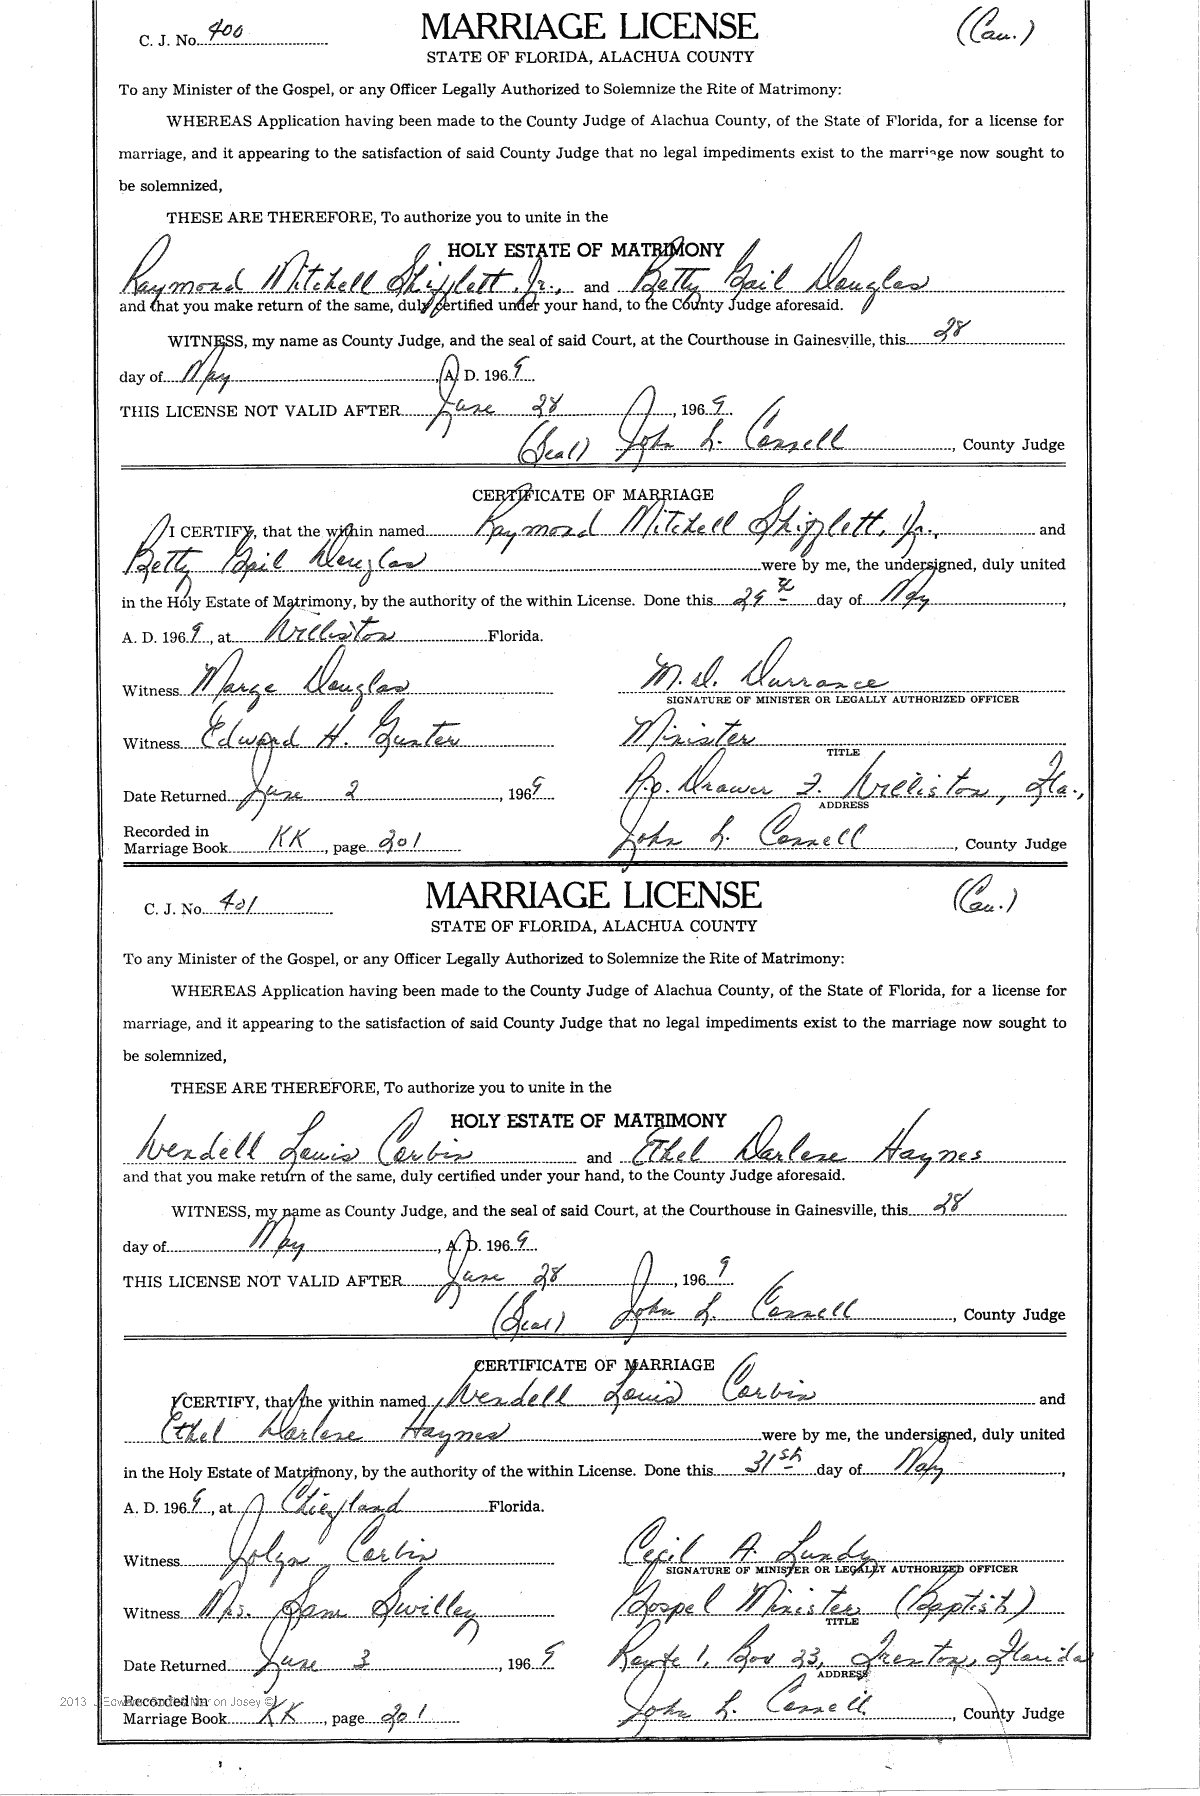 C. J. No. 400
MARRIAGE LICENSE
(Cau.)
STATE OF FLORIDA, ALACHUA COUNTY
To any Minister of the Gospel, or any Officer Legally Authorized to Solemnize the Rite of Matrimony:
WHEREAS Application having been made to the County Judge of Alachua County, of the State of Florida, for a license for
marriage, and it appearing to the satisfaction of said County Judge that no legal impediments exist to the marriage now sought to
be solemnized,
THESE ARE THEREFORE, To authorize you to unite in the
HOLY ESTATE OF MATRIMONY
Raymond Mitchell Shifflett, Jr., and Betty Gail Douglas
and that you make return of the same, duly certified under your hand, to the County Judge aforesaid.
WITNESS, my name as County Judge, and the seal of said Court, at the Courthouse in Gainesville, this 28
day of May, A. D. 1969
THIS LICENSE NOT VALID AFTER June 28, 1969
(Seal) John L. Connell, County Judge
CERTIFICATE OF MARRIAGE
I CERTIFY, that the within named Raymond Mitchell Shifflett, Jr., and
Betty Gail Douglas were by me, the undersigned, duly united
in the Holy Estate of Matrimony, by the authority of the within License. Done this 29th day of May,
A. D. 1969, at Williston Florida.
Witness Marge Douglas M. D. Durrance
SIGNATURE OF MINISTER OR LEGALLY AUTHORIZED OFFICER
Witness Edward H. Gunter Minister
TITLE
Date Returned June 2, 1969 P.O. Drawer Williston, Fla.,
ADDRESS
Recorded in
Marriage Book KK, page 201 John L. Connell, County Judge
C. J. No. 401
MARRIAGE LICENSE
(Cau.)
STATE OF FLORIDA, ALACHUA COUNTY
To any Minister of the Gospel, or any Officer Legally Authorized to Solemnize the Rite of Matrimony:
WHEREAS Application having been made to the County Judge of Alachua County, of the State of Florida, for a license for
marriage, and it appearing to the satisfaction of said County Judge that no legal impediments exist to the marriage now sought to
be solemnized,
THESE ARE THEREFORE, To authorize you to unite in the
HOLY ESTATE OF MATRIMONY
Wendell Louis Corbin and Ethel Darlene Haynes
and that you make return of the same, duly certified under your hand, to the County Judge aforesaid.
WITNESS, my name as County Judge, and the seal of said Court, at the Courthouse in Gainesville, this 28
day of May, A. D. 1969
THIS LICENSE NOT VALID AFTER June 28, 1969
(Seal) John L. Connell, County Judge
CERTIFICATE OF MARRIAGE
I CERTIFY, that the within named Wendell Louis Corbin and
Ethel Darlene Haynes were by me, the undersigned, duly united
in the Holy Estate of Matrimony, by the authority of the within License. Done this 31st day of May,
A. D. 1969, at Chiefland Florida.
Witness Jolyn Corbin Cecil A. Lundy
SIGNATURE OF MINISTER OR LEGALLY AUTHORIZED OFFICER
Witness Mrs. Swilley Gospel Minister (Baptist)
TITLE
Date Returned June 3, 1969 Route 1, Box 23, Trenton, Florida
ADDRESS
Recorded in
Marriage Book KK, page 201 John L. Connell, County Judge